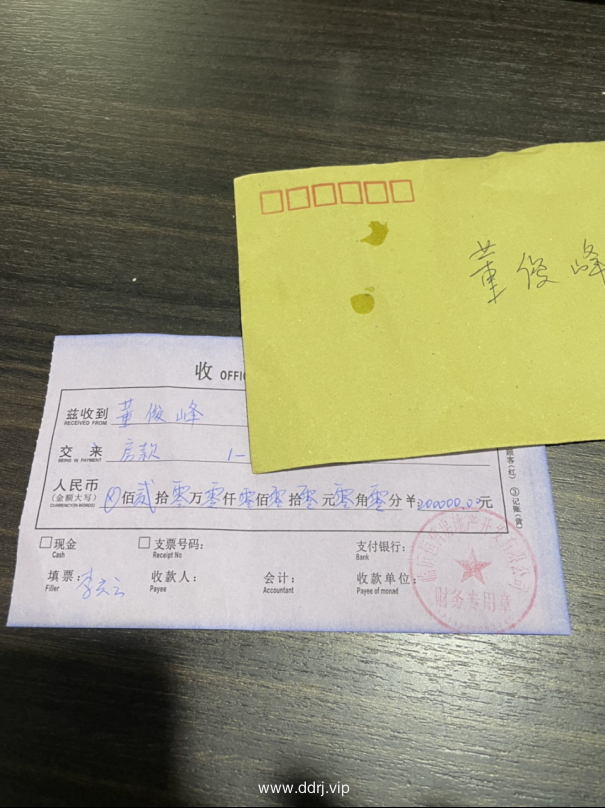 董俊峰
收 OFFIC
兹收到 董俊峰
RECEIVED FROM
交来 房款 1-
BEING IN PAYMENT
人民币 佰贰拾零万零仟零佰零拾零元零角零分 ¥200000.00元
(金额大写)
□现金 □支票号码: 支付银行:
Cash Receipt No Bank
填票: 收款人: 会计: 收款单位:
Filler Payee Accountant Payee of monad
财务专用章
顾客(红) ③记账(黄)
www.ddrj.vip